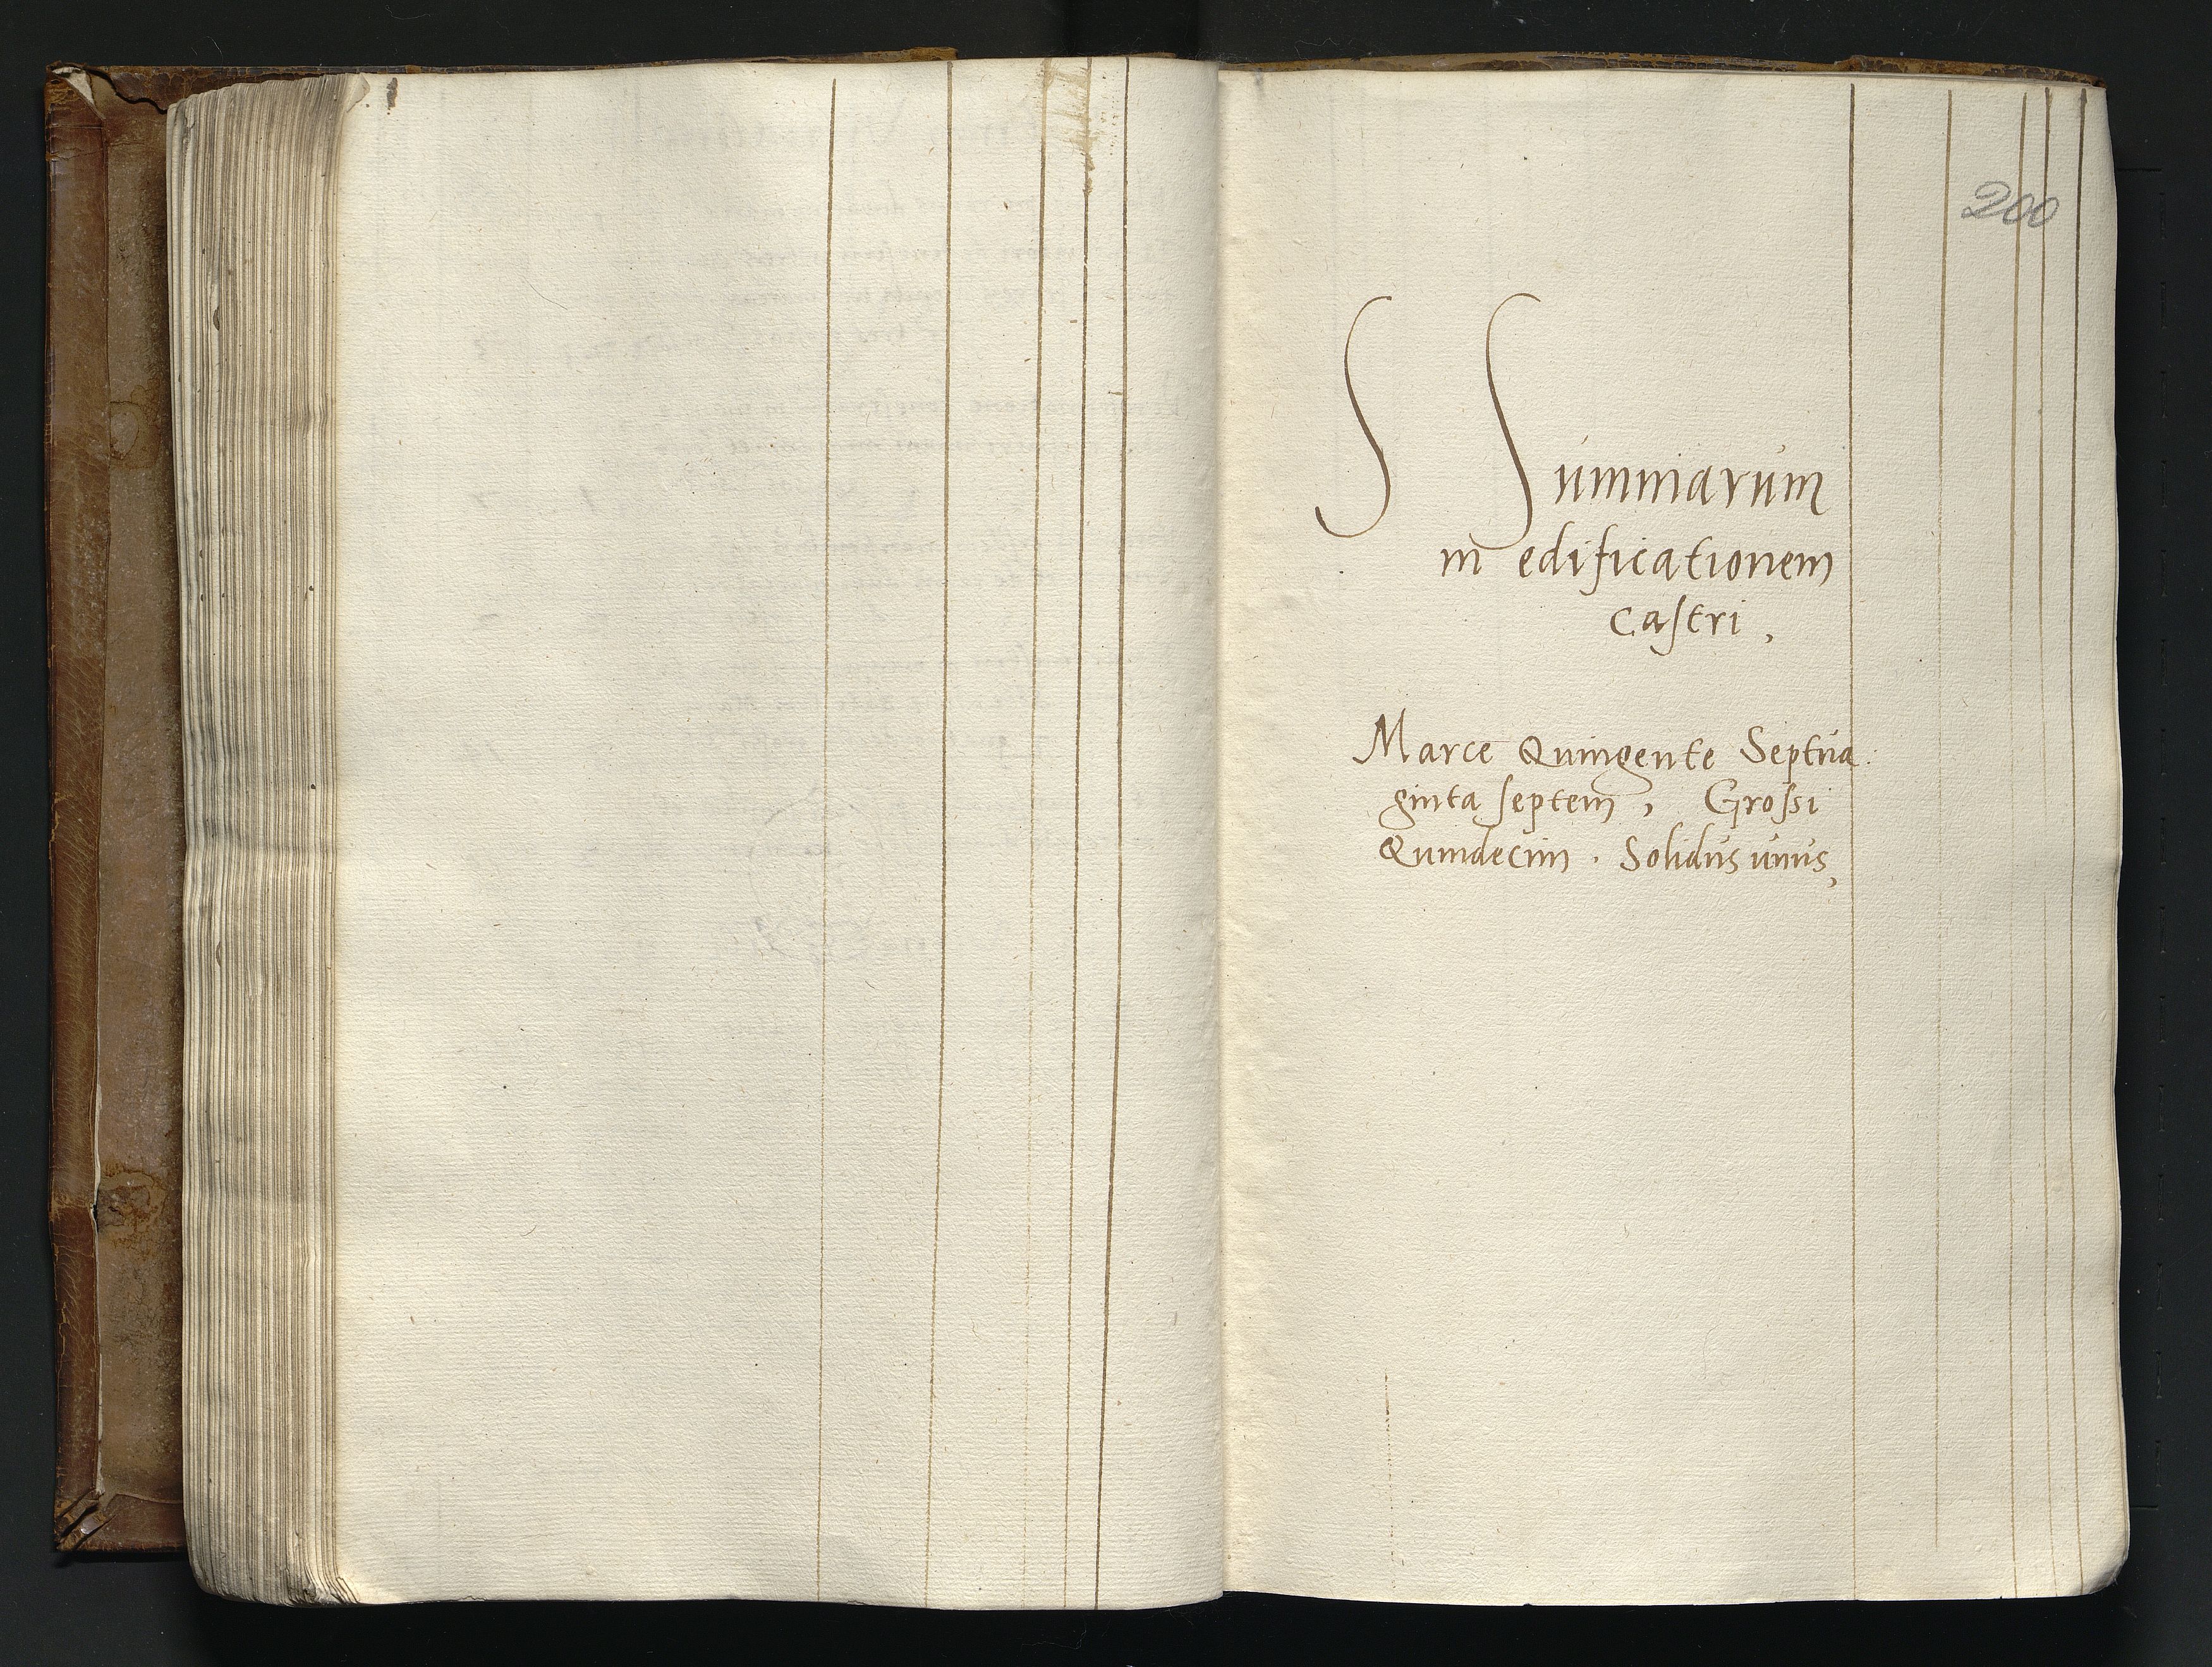 200
S Summarum
in edificationem
castri,
Marce Quingente Septua
ginta septem, Grossi
Quindecim. Solidus unus,